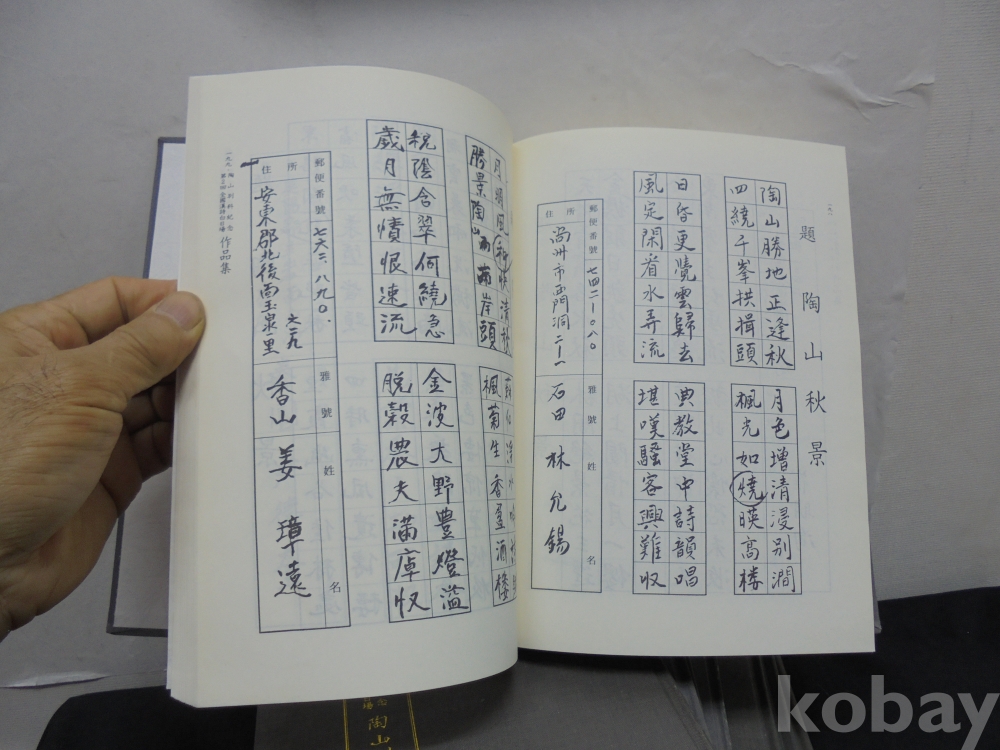 題陶山秋景
陶山勝地正逢秋
四繞千峯拱揖頭
月色增清浸別澗
楓光如燒暎高樓
日 更覺雲歸去
風定閑看水弄流
典教堂中詩韻唱
堪嘆騷客興難收
郵便番號 七四二-〇八〇
住所 尙州市西門洞二-一一
雅號 石田
姓名 林允錫
月明風和快清秋
勝景陶山兩岸頭
楓菊生香盈酒樓
陰含翠何繞急
歲月無憒恨速流
金波大野豊燈溢
脫穀農夫滿庫収
郵便番號 七六二-八九〇
住所 安東郡北後面玉泉一里
雅號 香山
姓名 姜璋遠
作品集
陶山
kobay